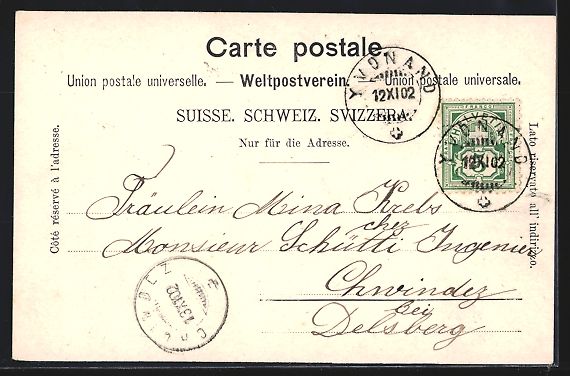 Carte postale.
Union postale universelle. — Weltpostverein. — Unione postale universale.
SUISSE. SCHWEIZ. SVIZZERA.
Nur für die Adresse.
Côté réservé à l'adresse.
Lato riservato all' indirizzo.
YVONAND
12 XI 02
YVONAND
12 XI 02
Fräulein Mina Krebs
chez
Monsieur Schütti Ingenieur
Chwindez
bei
Delsberg
13 XI 02